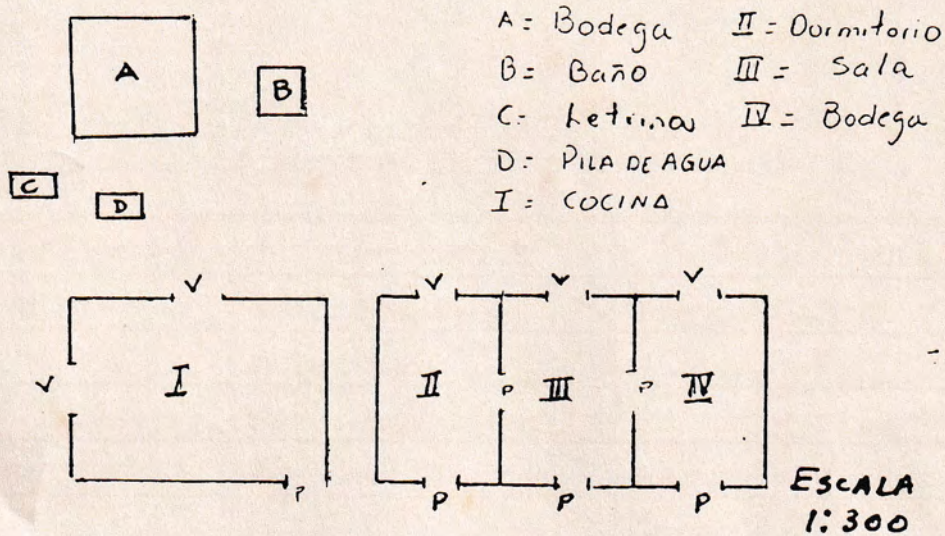 A = Bodega
B = Baño
C = Letrina
D = PILA DE AGUA
I = COCINA
II = Dormitorio
III = Sala
IV = Bodega
A
B
C
D
V
V
V
V
V
I
II
P
III
P
IV
P
P
P
P
ESCALA
1:300